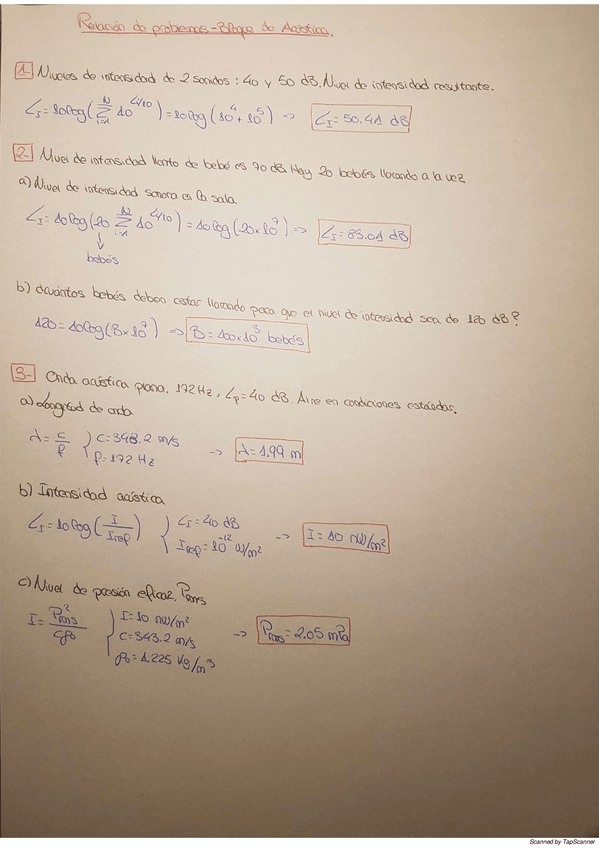 Relación de problemas - Bloque de Acústica.
1. Niveles de intensidad de 2 sonidos: 40 y 50 dB. Nivel de intensidad resultante.
L_I = 10log(Σ_{i=1}^{N} 10^{Li/10}) = 10log(10^4 + 10^5) -> L_I = 50.41 dB
2- Nivel de intensidad llanto de bebé es 70 dB. Hay 20 bebés llorando a la vez
a) Nivel de intensidad sonora en la sala
L_I = 10log(20 Σ_{i=1}^{N} 10^{Li/10}) = 10log(20×10^7) => L_I = 83.01 dB
↓
bebés
b) ¿Cuántos bebés deben estar llorando para que el nivel de intensidad sea de 120 dB?
120 = 10log(B×10^7) => B = 100×10^3 bebés
3- Onda acústica plana, 172 Hz, L_p = 40 dB. Aire en condiciones estándar.
a) Longitud de onda
λ = c/f { c = 343.2 m/s
f = 172 Hz -> λ = 1,99 m
b) Intensidad acústica
L_I = 10log(I/I_ref) { L_I = 40 dB
I_ref = 10^-12 W/m² -> I = 10 nW/m²
c) Nivel de presión eficaz, P_rms
I = P_rms²/cρ₀ { I = 10 nW/m²
c = 343.2 m/s -> P_rms = 2.05 mPa
ρ₀ = 1.225 kg/m³
Scanned by TapScanner